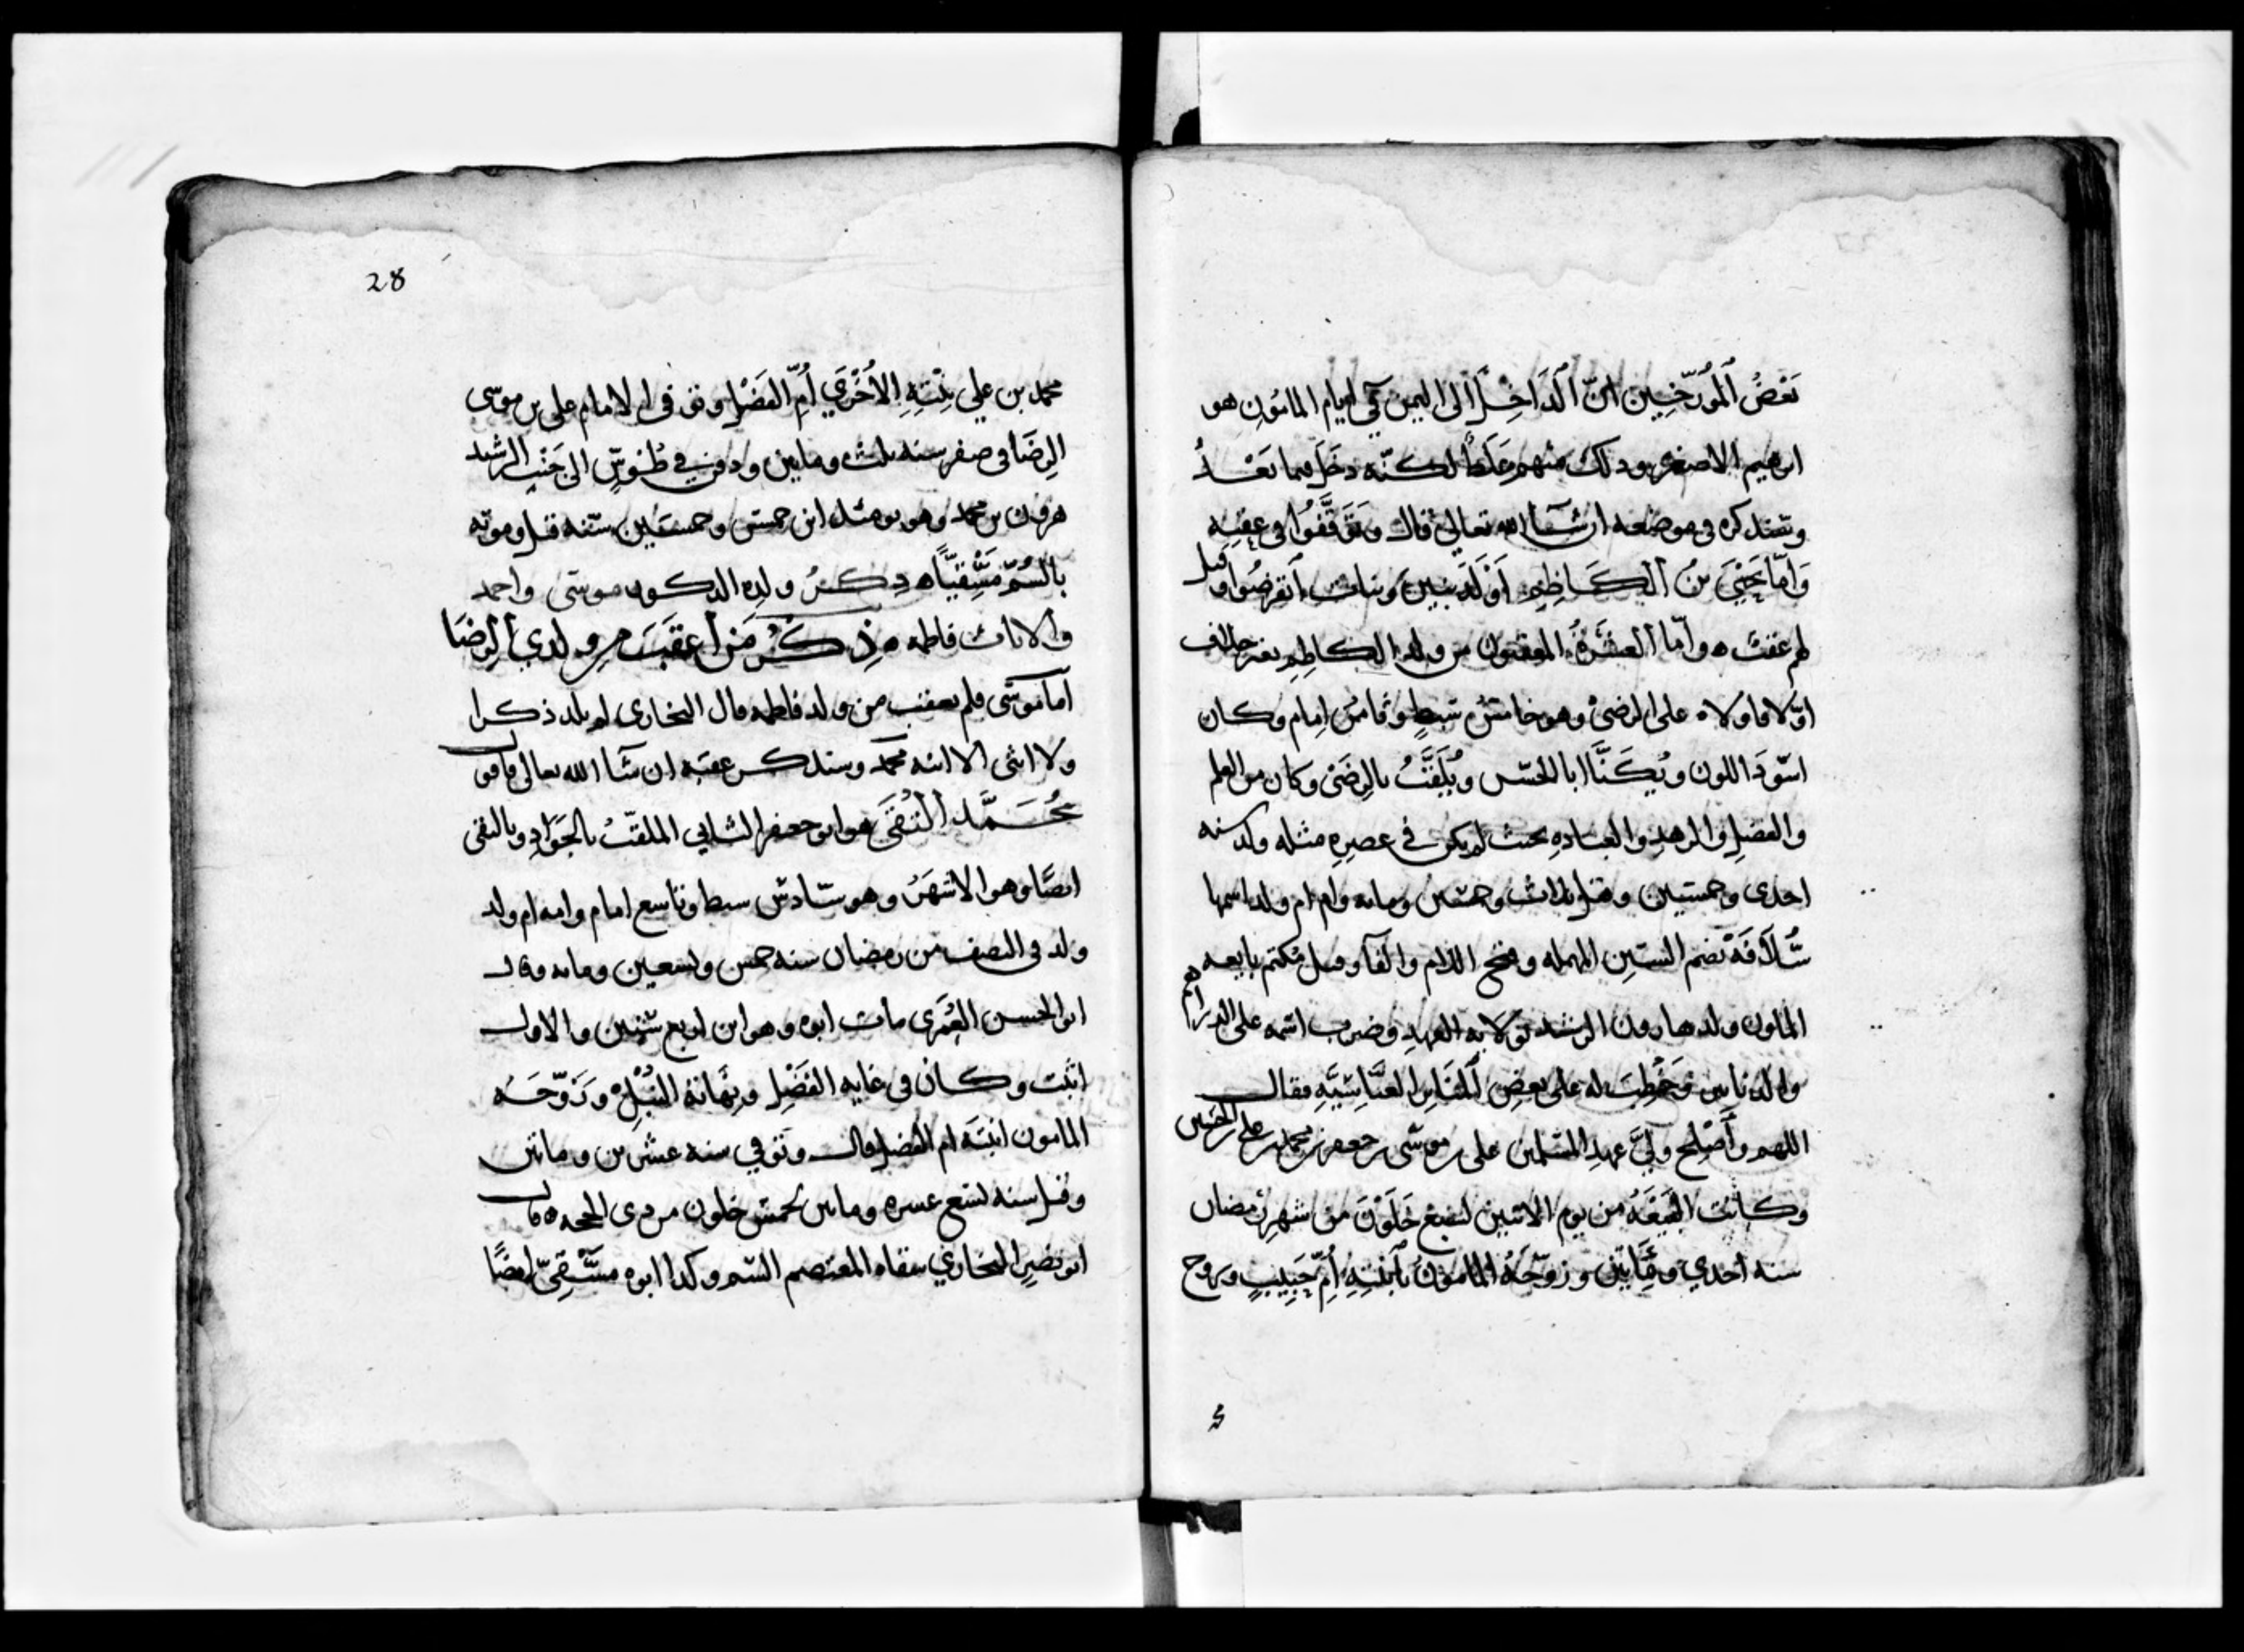 بَعْضُ ٱلمُوَرّخِيِن انّ ٱلدَاخِلَ الى اليمن في ايام المامُونِ هو
ابرهيم الاصغر وذلك منهم غَلَطٌ لكنّه دخل فيما بَعْدُ
وسنذكره في موضعه ان شآ الله تعالى قال وتَوَقَّفُوا في عقبِه
وَامّا يَحْيَى بنُ الكَاظِمِ أَوْلَدَ بنينَ وبنات انقرضُوا وقيل
لم يعقب ه وأمّا العشَرَةُ المعقبون من ولد الكاظِم بغير خلاف
اوّلا فاولاه على الرضىْ وهو خامسُ سبطٍ وثامنُ اِمام وكان
اسْوَدَ اللون ويُكَنَّا ابا الحسن ويُلَقَّبُ بالرِضَى وكان من العلم
والفضلِ والزهدِ والعبادهِ بحيث لم يكن في عصرِهِ مثله ولد سنه
احدى وخمسين وقيل ثلاث وخمسين ومايه وامه ام ولد اسمها
سُلَافَهْ بضم السّين المهمله وفتح اللام والفآ وقيل تكتم بايعه
المامون ولد هارون الرشد بولايه العهدِ وضرب اسمه على الدراهم
والدنانير وخُطِبَ له على بعضِ المنَابِر العبّاسيّهِ فقال
اللهم وأَصْلِح وليَّ عهدِ المسلمين على بن موسى بن جعفر بن محمد بن على بن الحسين
وكانت البَيْعَهُ من يوم الاثنين لسبع خَلَوْنَ من شهرِ رمضان
سنه احدي ومِائتين وزوّجَهُ المامونُ بٱبنتِهِ أُمِّ حَبِيبٍ وزوج
28
محمد بن علي بِنْتِهِ الأُخْرَي أُمِّ الفَضْلِ وتوفى الامام على بن موسى
الرِضَا فى صفر سنه ثلث ومايتين ودفن في طُوسٍ الى جَنْبِ الرشيد
هرون بن محمد وهو يومئذ ابن خمس وخمسين سنه قيل وموته
بالسُّمِّ مَسْقِيًّا ه ذِكْرُ ولده الذكور موسَى واحمد
والاناث فاطمه ه ذِكْرُ مَن أعقَبَ من ولدي الرِضَا
اما موسَى فلم يعقب من ولد فاطمه قال البخاري لم يلد ذكرا
ولا انثى الا ابنه محمد وسنذكر عقبه ان شآ الله تعالى
مُحَمَّد التُقَى هو ابو جعفر الثاني الملقّبُ بالجَوَادِ وبالتقى
ايضًا وهو الاشهَرُ وهو سَادسُ سبط وتاسع امام وامه ام ولد
ولد فى النصف من رمضان سنه خمس وتسعين ومايه وقال
ابو الحسن العُمَرى مات ابوه وهو ابن اربع سنين والاول
اثبت وكان فى غايه الفَضْلِ ونِهَايَهُ النُبْلِ وزَوّجَهُ
المامون ابنتَه ام الفضل قال وتوفي سنه عشرين ومائتين
وقيل سنه تسع عشره ومايتين لخمسٍ خلون من ذى الحجه ه قال
ابو نصرٍ البخاريّ سقاه المعتصم السّم وكذا ابوه مَسْقِىّ ايضًا